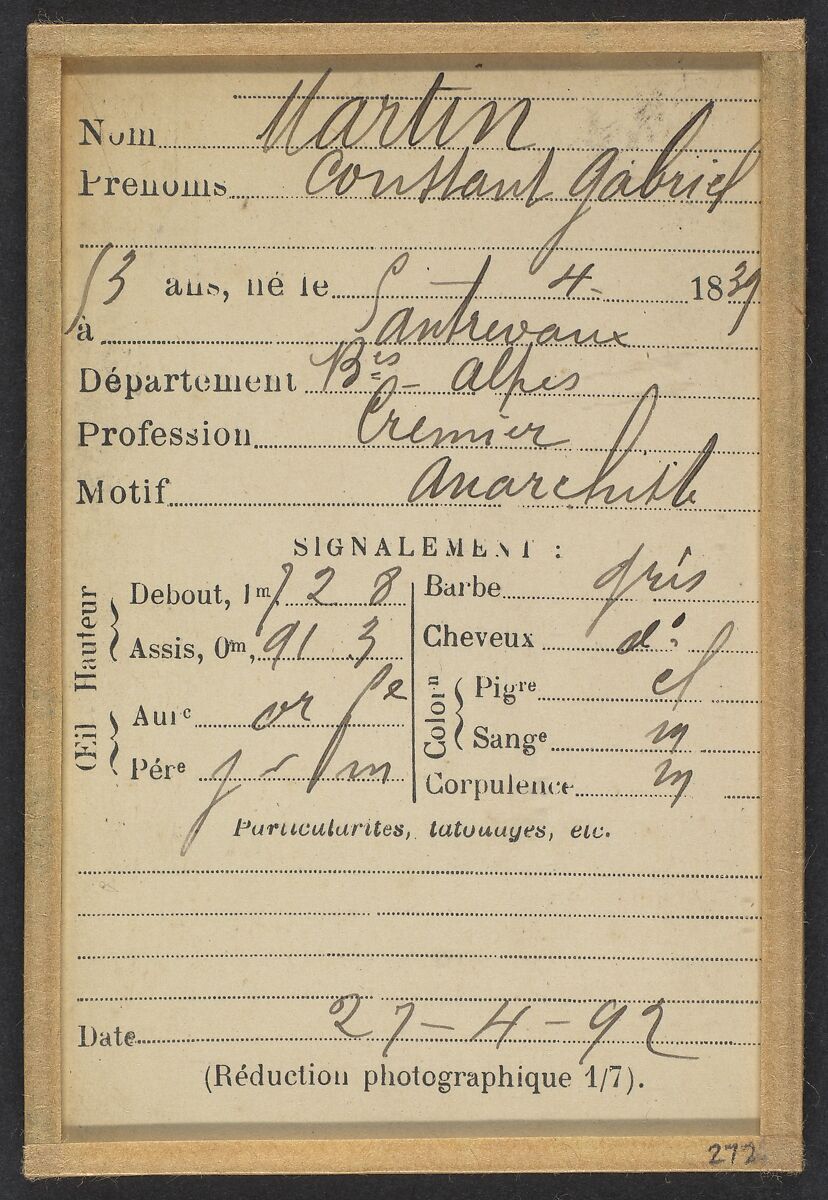 Nom Martin
Prénoms Constant Gabriel
53 ans, né le 4 - 1839
à Santrevaux
Département Bses Alpes
Profession Cremier
Motif Anarchiste
SIGNALEMENT :
Hauteur
Debout, 1m, 72 8
Assis, 0m, 91 3
Œil
Aure or fe
Pére m
Barbe gris
Cheveux do
Colorn
Pigre cl
Sange m
Corpulence m
Particularités, tatouages, etc.
Date 27-4-92
(Réduction photographique 1/7).
272